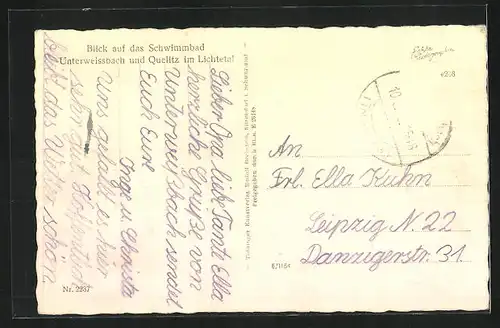 Blick auf das Schwimmbad
Unterweissbach und Quelitz im Lichtetal
Lieber Opa, liebe Tante Ella
herzliche Grüße von
Unterweißbach sendet
Euch Eure
Inge u. Christa
Uns gefällt es hier
sehr gut. Hoffentlich
bleibt das Wetter schön.
Nr. 2237
An
Frl. Ella Kuhn
Leipzig N. 22
Danzigerstr. 31